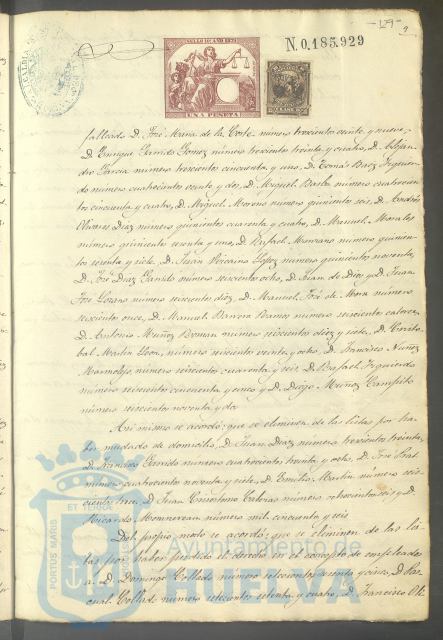 -129-
2
SELLO 10º AÑO 1879
UNA PESETA
N. 0.185.929
fallecido D. José Mena de la Corte número trescientos veinte y nueve,
D. Enrique Garrido Gomez número trescientos treinta y cuatro, D. Alejan-
dro Garcia número trescientos cincuenta y uno, D. Tomás Baez Izquier-
do número cuatrocientos veinte y dos, D. Miguel Barba número cuatrocien-
tos cincuenta y cuatro, D. Miguel Moreno número quinientos seis, D. Andrés
Olivares Diaz número quinientos cuarenta y cuatro, D. Manuel Morales
número quinientos sesenta y uno, D. Rafael Manzano número quinien-
tos sesenta y siete, D. Juan Lopez número quinientos noventa,
D. José Diaz Garrido número seiscientos ocho, D. Juan de Dios y D. Juan
José Lozano número seiscientos diez, D. Manuel José de Mora número
seiscientos once, D. Manuel Barrera Ramos número seiscientos catorce,
D. Antonio Muñoz Roman número seiscientos diez y siete, D. Cristo-
bal Martin Toca, número seiscientos veinte y ocho, D. Francisco Nuñez
Marmolejo número seiscientos cuarenta y seis D. Rafael Izquierdo
número seiscientos cincuenta y cinco y D. Diego Muñoz
número seiscientos noventa y dos
Asi mismo se acordó: que se eliminen de las listas por ha-
ber mudado de domicilio, D. Juan Diaz número trescientos treinta,
D. Francisco Garrido número cuatrocientos treinta y ocho, D. José Prat
número cuatrocientos noventa y siete, D. Emilio Martin número seis-
cientos trece, D. Juan Crisóstomo número ochocientos seis y D.
Ricardo número mil cincuenta y seis
Del propio modo se acordó: que se eliminen de las lis-
tas por haber perdido el derecho en el concepto de empleados
a D. Domingo Collado número setecientos sesenta y cinco, D. Pas-
cual Collado número setecientos setenta y cuatro, D. Francisco
PORTUS MARIS
ET TERRA
Ayuntamiento de
HUELVA